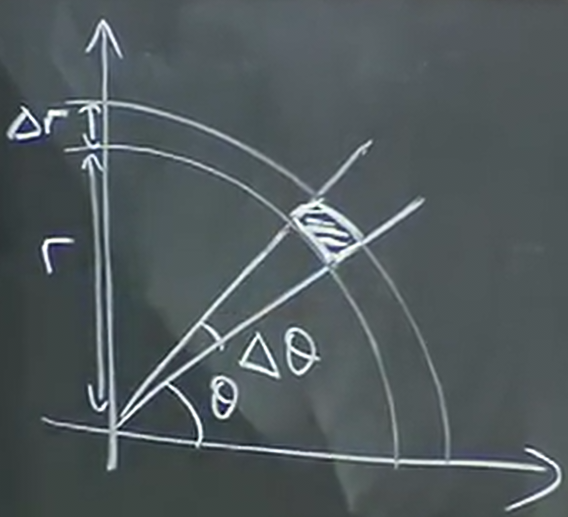 Δr
r
Δθ
θ